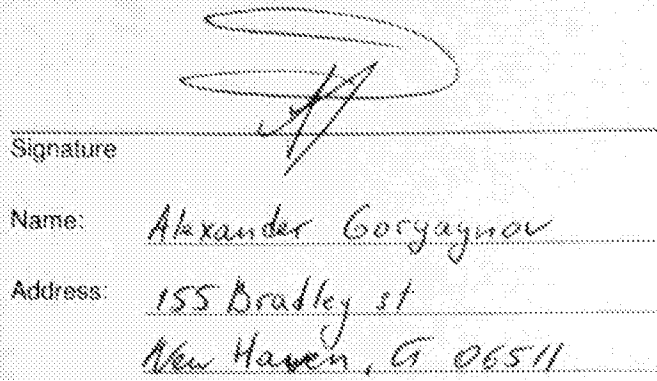 Signature
Name: Alexander Goryagnov
Address: 155 Bradley st
New Haven, CT 06511